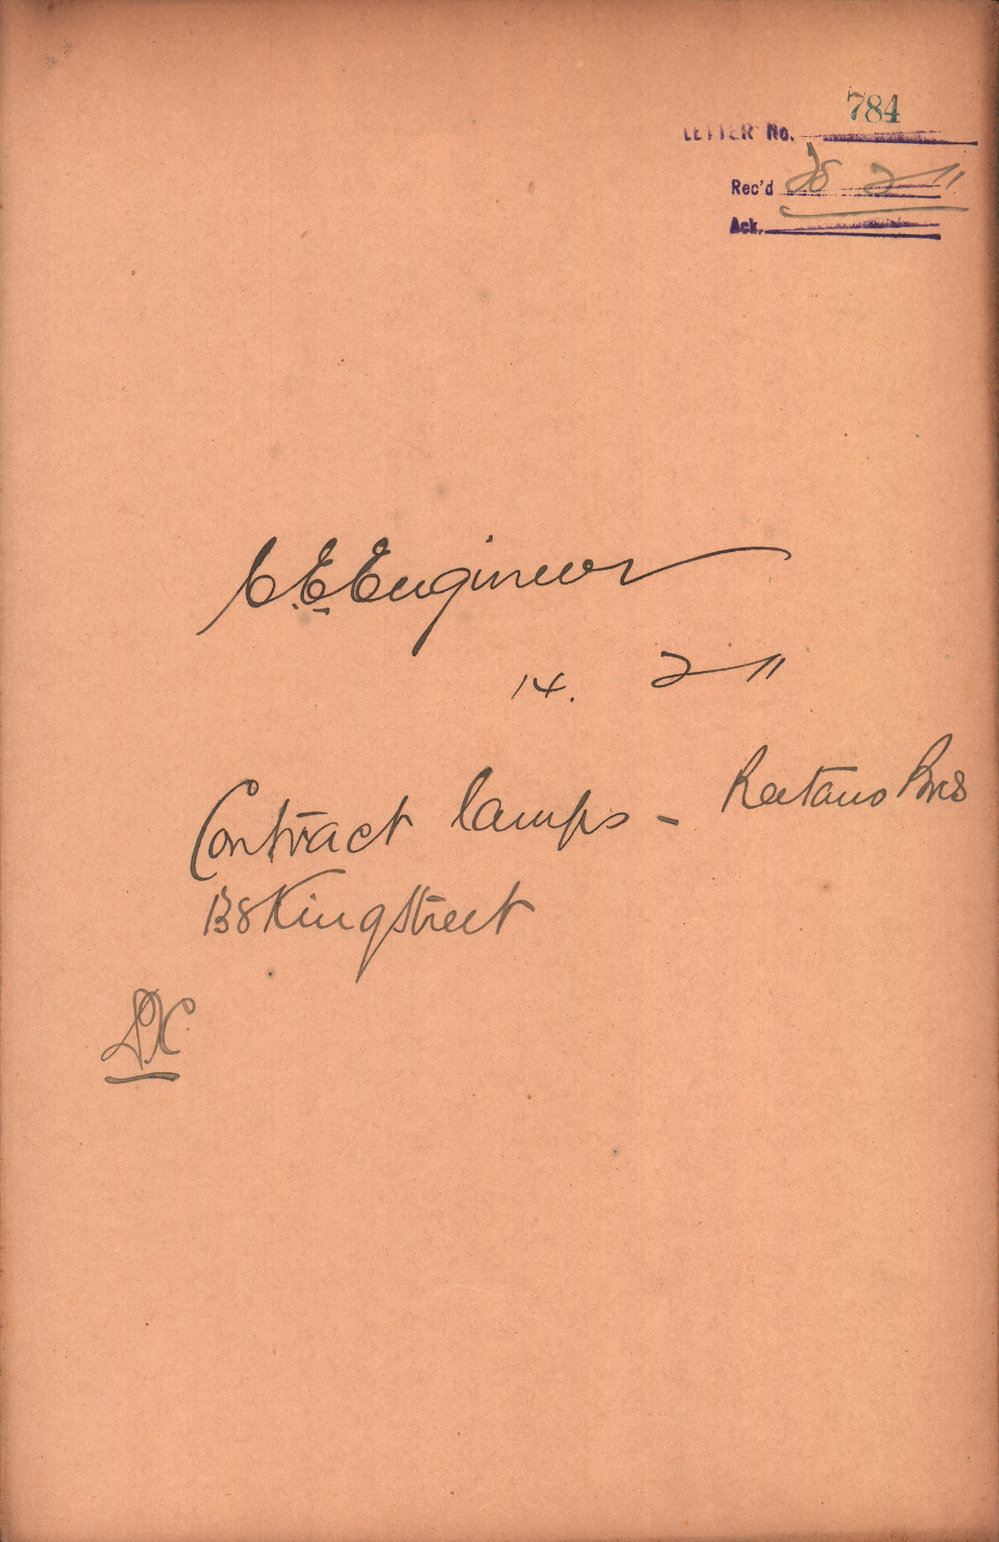 784
LETTER No.
Rec'd 28 2-11
Ack.
C.E. Engineer
14. 2-11
Contract lamps - Reetano Bros
138 King Street